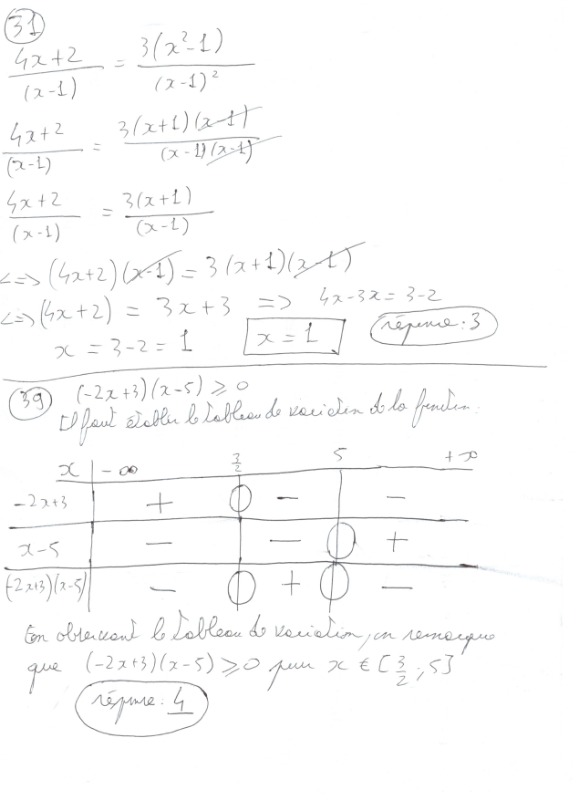 31
(4x+2)/(x-1) = 3(x²-1)/(x-1)²
4x+2/(x-1) = 3(x+1)(x-1)/(x-1)(x-1)
4x+2/(x-1) = 3(x+1)/(x-1)
<=> (4x+2)(x-1) = 3(x+1)(x-1)
<=> (4x+2) = 3x+3 => 4x-3x = 3-2
x = 3-2 = 1 x = 1 réponse : 3
39 (-2x+3)(x-5) ⩾ 0
Il faut établir le tableau de variation de la fonction.
x -∞ 3/2 5 +∞
-2x+3 + 0 - -
x-5 - - 0 +
(-2x+3)(x-5) - 0 + 0 -
En observant le tableau de variation, on remarque
que (-2x+3)(x-5) ⩾ 0 pour x ∈ [3/2 ; 5]
réponse : 4